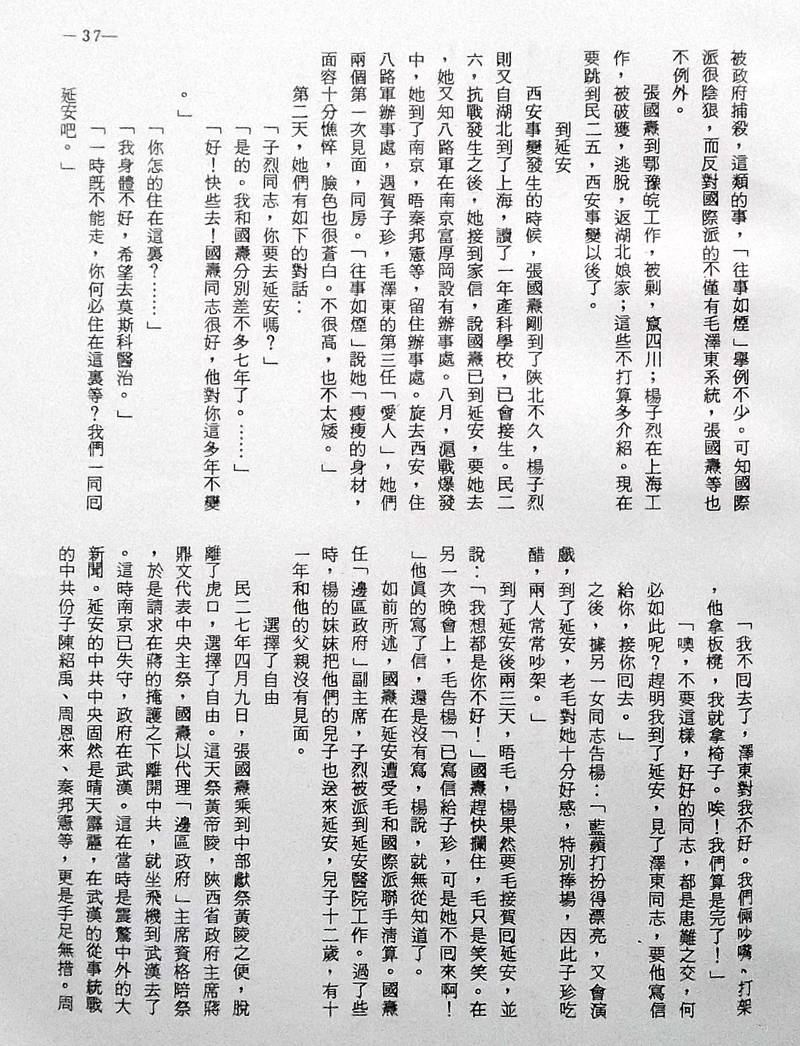 —37—
被政府捕殺，這類的事，「往事如煙」舉例不少。可知國際
派很陰狠，而反對國際派的不僅有毛澤東系統，張國燾等也
不例外。
張國燾到鄂豫皖工作，被剿，竄四川；楊子烈在上海工
作，被破獲，逃脫，返湖北娘家；這些不打算多介紹。現在
要跳到民二五，西安事變以後了。
到延安
西安事變發生的時候，張國燾剛到了陝北不久，楊子烈
則又自湖北到了上海，讀了一年產科學校，已會接生。民二
六，抗戰發生之後，她接到家信，說國燾已到延安，要她去
，她又知八路軍在南京富厚岡設有辦事處。八月，滬戰爆發
中，她到了南京，晤秦邦憲等，留住辦事處。旋去西安，住
八路軍辦事處，遇賀子珍，毛澤東的第三任「愛人」，她們
兩個第一次見面，同房。「往事如煙」說她「瘦瘦的身材，
面容十分憔悴，臉色也很蒼白。不很高，也不太矮。」
第二天，她們有如下的對話：
「子烈同志，你要去延安嗎？」
「是的。我和國燾分別差不多七年了。……」
「好！快些去！國燾同志很好，他對你這多年不變
。」
「你怎的住在這裏？……」
「我身體不好，希望去莫斯科醫治。」
「一時旣不能走，你何必住在這裏等？我們一同回
延安吧。」
「我不回去了，澤東對我不好。我們倆吵嘴、打架
，他拿板櫈，我就拿椅子。唉！我們算是完了！」
「噢，不要這樣，好好的同志，都是患難之交，何
必如此呢？趕明我到了延安，見了澤東同志，要他寫信
給你，接你回去。」
之後，據另一女同志告楊：「藍蘋打扮得漂亮，又會演
戲，到了延安，老毛對她十分好感，特別捧場，因此子珍吃
醋，兩人常常吵架。」
到了延安後兩三天，晤毛，楊果然要毛接賀回延安，並
說：「我想都是你不好！」國燾趕快攔住，毛只是笑笑。在
另一次晚會上，毛告楊「已寫信給子珍，可是她不回來啊！
」他眞的寫了信，還是沒有寫，楊說，就無從知道了。
如前所述，國燾在延安遭受毛和國際派聯手淸算。國燾
任「邊區政府」副主席，子烈被派到延安醫院工作。過了些
時，楊的妹妹把他們的兒子也送來延安，兒子十二歲，有十
一年和他的父親沒有見面。
選擇了自由
民二七年四月九日，張國燾乘到中部獻祭黃陵之便，脫
離了虎口，選擇了自由。這天祭黃帝陵，陝西省政府主席蔣
鼎文代表中央主祭，國燾以代理「邊區政府」主席資格陪祭
，於是請求在蔣的掩護之下離開中共，就坐飛機到武漢去了
。這時南京已失守，政府在武漢。這在當時是震驚中外的大
新聞。延安的中共中央固然是晴天霹靂，在武漢的從事統戰
的中共份子陳紹禹、周恩來、秦邦憲等，更是手足無措。周